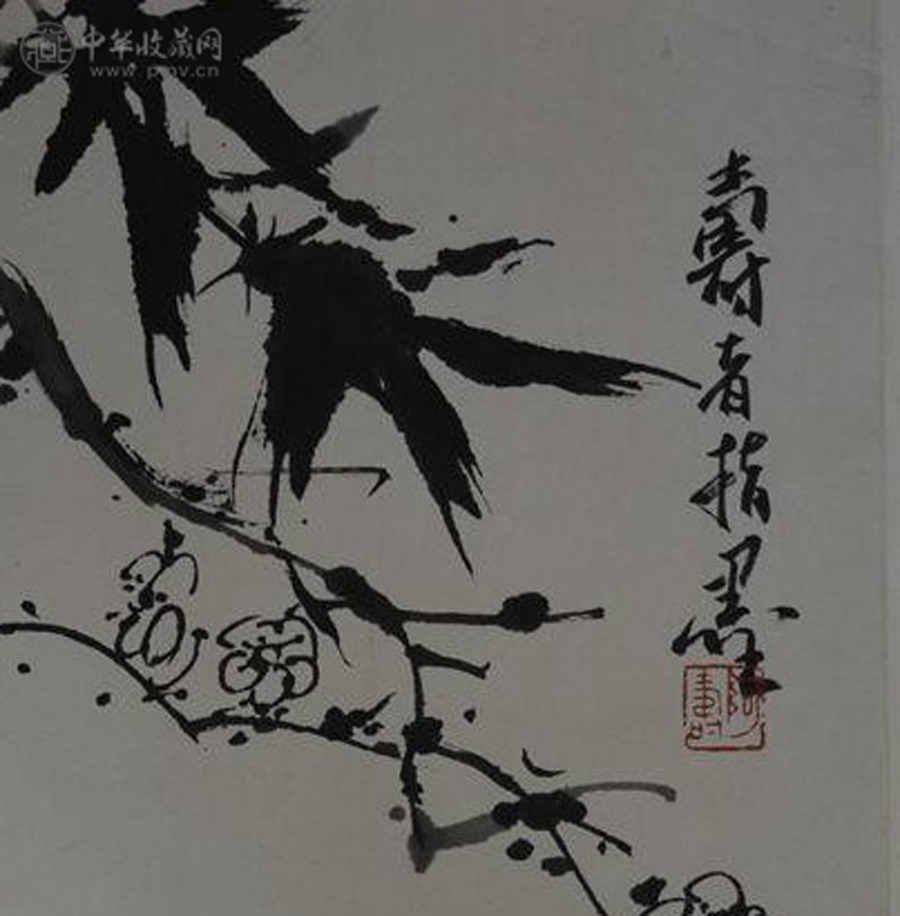 中华收藏网
www.pmv.cn
壽者指墨